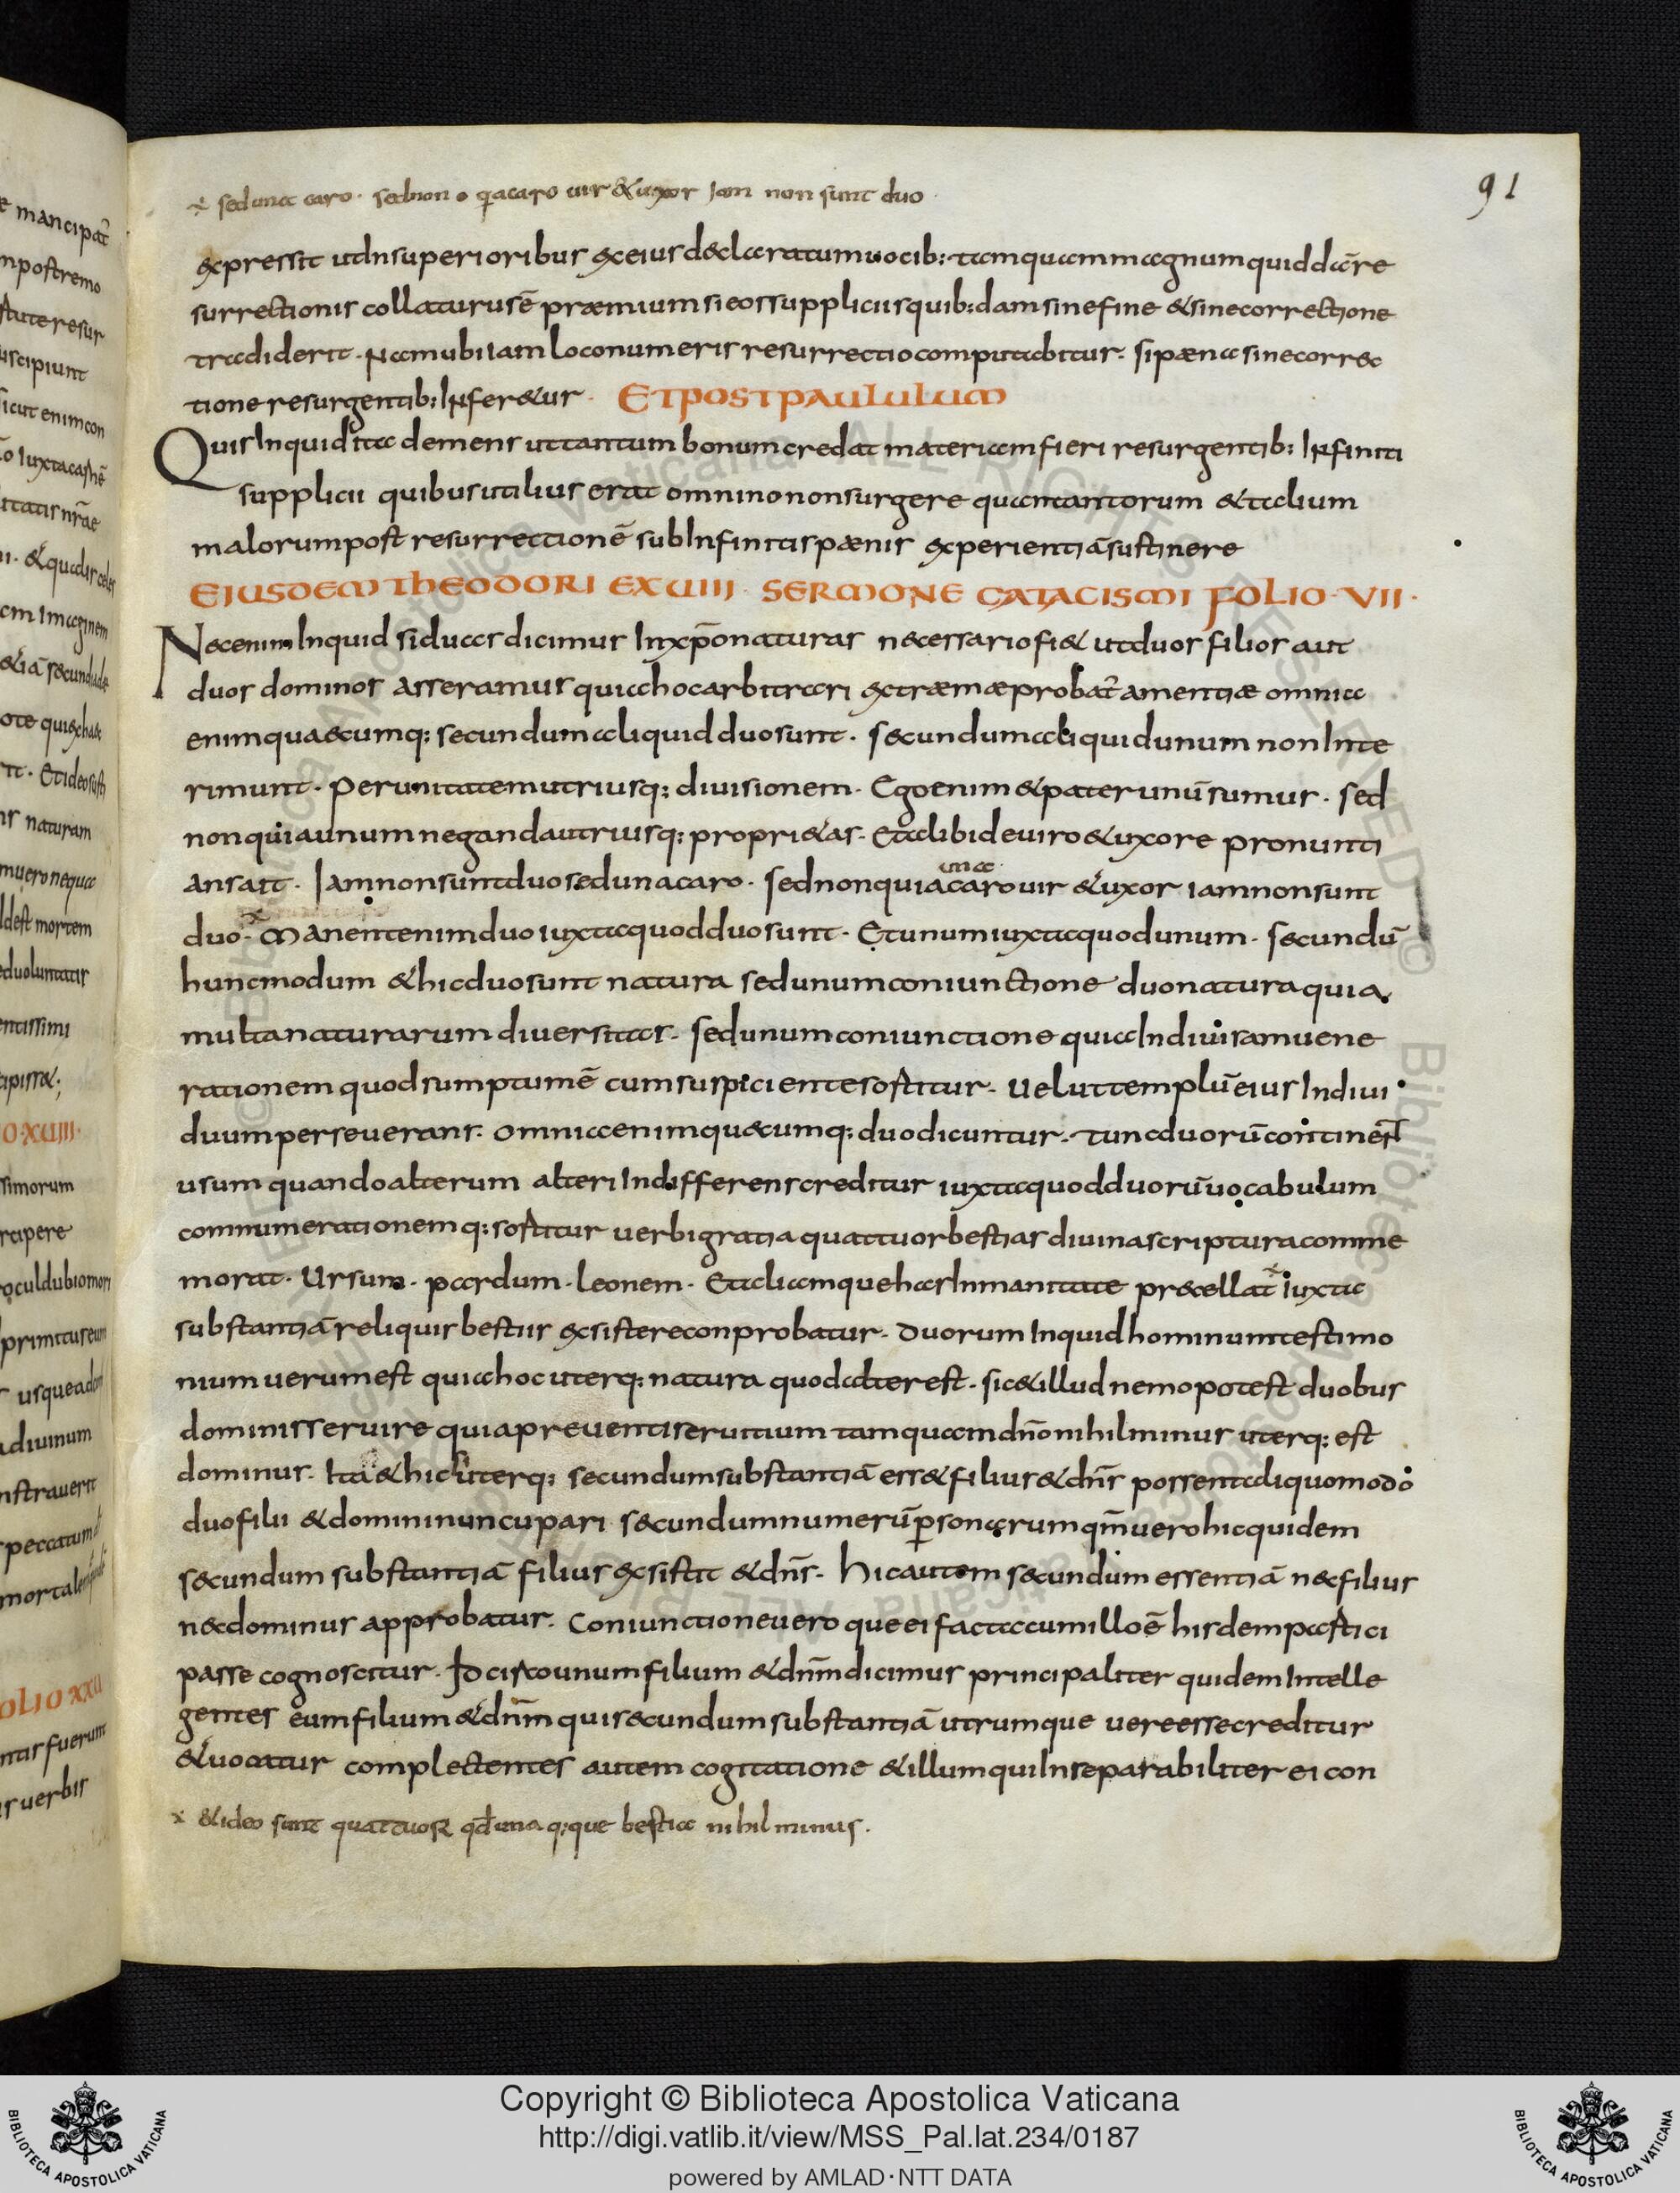 ÷ sed una caro · sed non · q̄a caro uir & uxor Iam non sunt duo ·
91
expressit ut In superioribus ex eius declaratum uocib: tamquam magnum quiddā re
surrectionis collaturus ē præmium si eos suppliciis quib:dam sine fine & sine correctione
tradiderit · Nam ubi iam loco numeris resurrectio computabitur · si pæna sine correc
tione resurgentib: Infer&ur · ET POST PAULULUM
Quis Inquid ita demens ut tantum bonum credat materiam fieri resurgentib: Infiniti
supplicii quibus utilius erat omnino non surgere quam tantorum & talium
malorum post resurrectionē sub Infinitis pænis experientiā sustinere
EIUSDEM THEODORI EX UIIII · SERMONE CATACISMI FOLIO · VII ·
Nec enim Inquid si duas dicimus In xp̄o naturas necessario fi& ut duos filios aut
duos dominos asseramus quia hoc arbitrari extræmæ probat̄ amentiæ omnia
enim quæcumq: secundum aliquid duo sunt · secundum aliquid unum non Inte
rimunt · per unitatem utriusq: diuisionem · Ego enim & pater unū sumus · sed
non quia unum neganda utriusq: propri&as · Et alibi de uiro & uxore pronunti
ans ait · Iam non sunt duo sed una caro · sed non quia caro uir & uxor iam non sunt
una
duo · Manent enim duo iuxta quod duo sunt · Et unum iuxta quod unum · secundū
hunc modum & hic duo sunt natura sed unum coniunctione duo natura quia
multa naturarum diuersitas · sed unum coniunctione quia Indiuisam uene
rationem quod sumptum ē cum suspiciente sostitur · uelut templū eius Indiui
duum perseuerans · omnia enim quæcumq: duo dicuntur · tunc duorū continent
usum quando alterum alteri Indifferens creditur iuxta quod duorū uocabulum
connumerationemq: sostitur uerbi gratia quattuor bestias diuina scriptura comme
morat · Ursum · pardum · leonem · Et aliam que has Inmanitate præcellat iuxta
substantiā reliquis bestiis existere conprobatur · duorum Inquid hominum testimo
nium uerum est quia hoc uterq: natura quod alter est · sic & illud nemo potest duobus
dominis seruire quia preuenti seruitium tamquam dn̄o nihilminus uterq: est
dominus · Ita & hic si uterq: secundum substantiā ess& filius & dn̄s possent aliquo modo
duo filii & domini nuncupari secundum numerū personarum qm̄ uero hic quidem
secundum substantiā filius existit & dn̄s · hic autem secundum essentiā nec filius
nec dominus approbatur · Coniunctione uero que ei facta cum illo ē hisdem partici
passe cognoscitur · Id circo unum filium & dn̄m dicimus principaliter quidem Intelle
gentes eum filium & dn̄m qui secundum substantiā utrumque uere esse creditur
& uocatur complectentes autem cogitatione & illum qui Inseparabiliter ei con
x & ideo sunt quattuor qđ una q:que bestia nihilminus ·
Copyright © Biblioteca Apostolica Vaticana
http://digi.vatlib.it/view/MSS_Pal.lat.234/0187
powered by AMLAD·NTT DATA
BIBLIOTECA APOSTOLICA VATICANA
BIBLIOTECA APOSTOLICA VATICANA